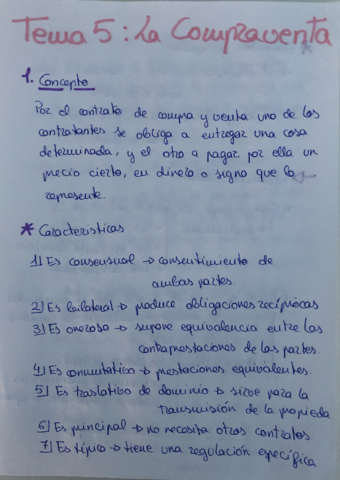 Tema 5: La Compraventa
1. Concepto
Por el contrato de compra y venta uno de los
contratantes se obliga a entregar una cosa
determinada, y el otro a pagar por ella un
precio cierto, en dinero o signo que lo
represente.
* Características
1) Es consensual → consentimiento de
ambas partes.
2) Es bilateral → produce obligaciones recíprocas
3) Es oneroso → supone equivalencia entre las
contraprestaciones de las partes.
4) Es conmutativo → prestaciones equivalentes.
5) Es traslativo de dominio → sirve para la
transmisión de la propieda
6) Es principal → no necesita otros contratos
7) Es típico → tiene una regulación específica